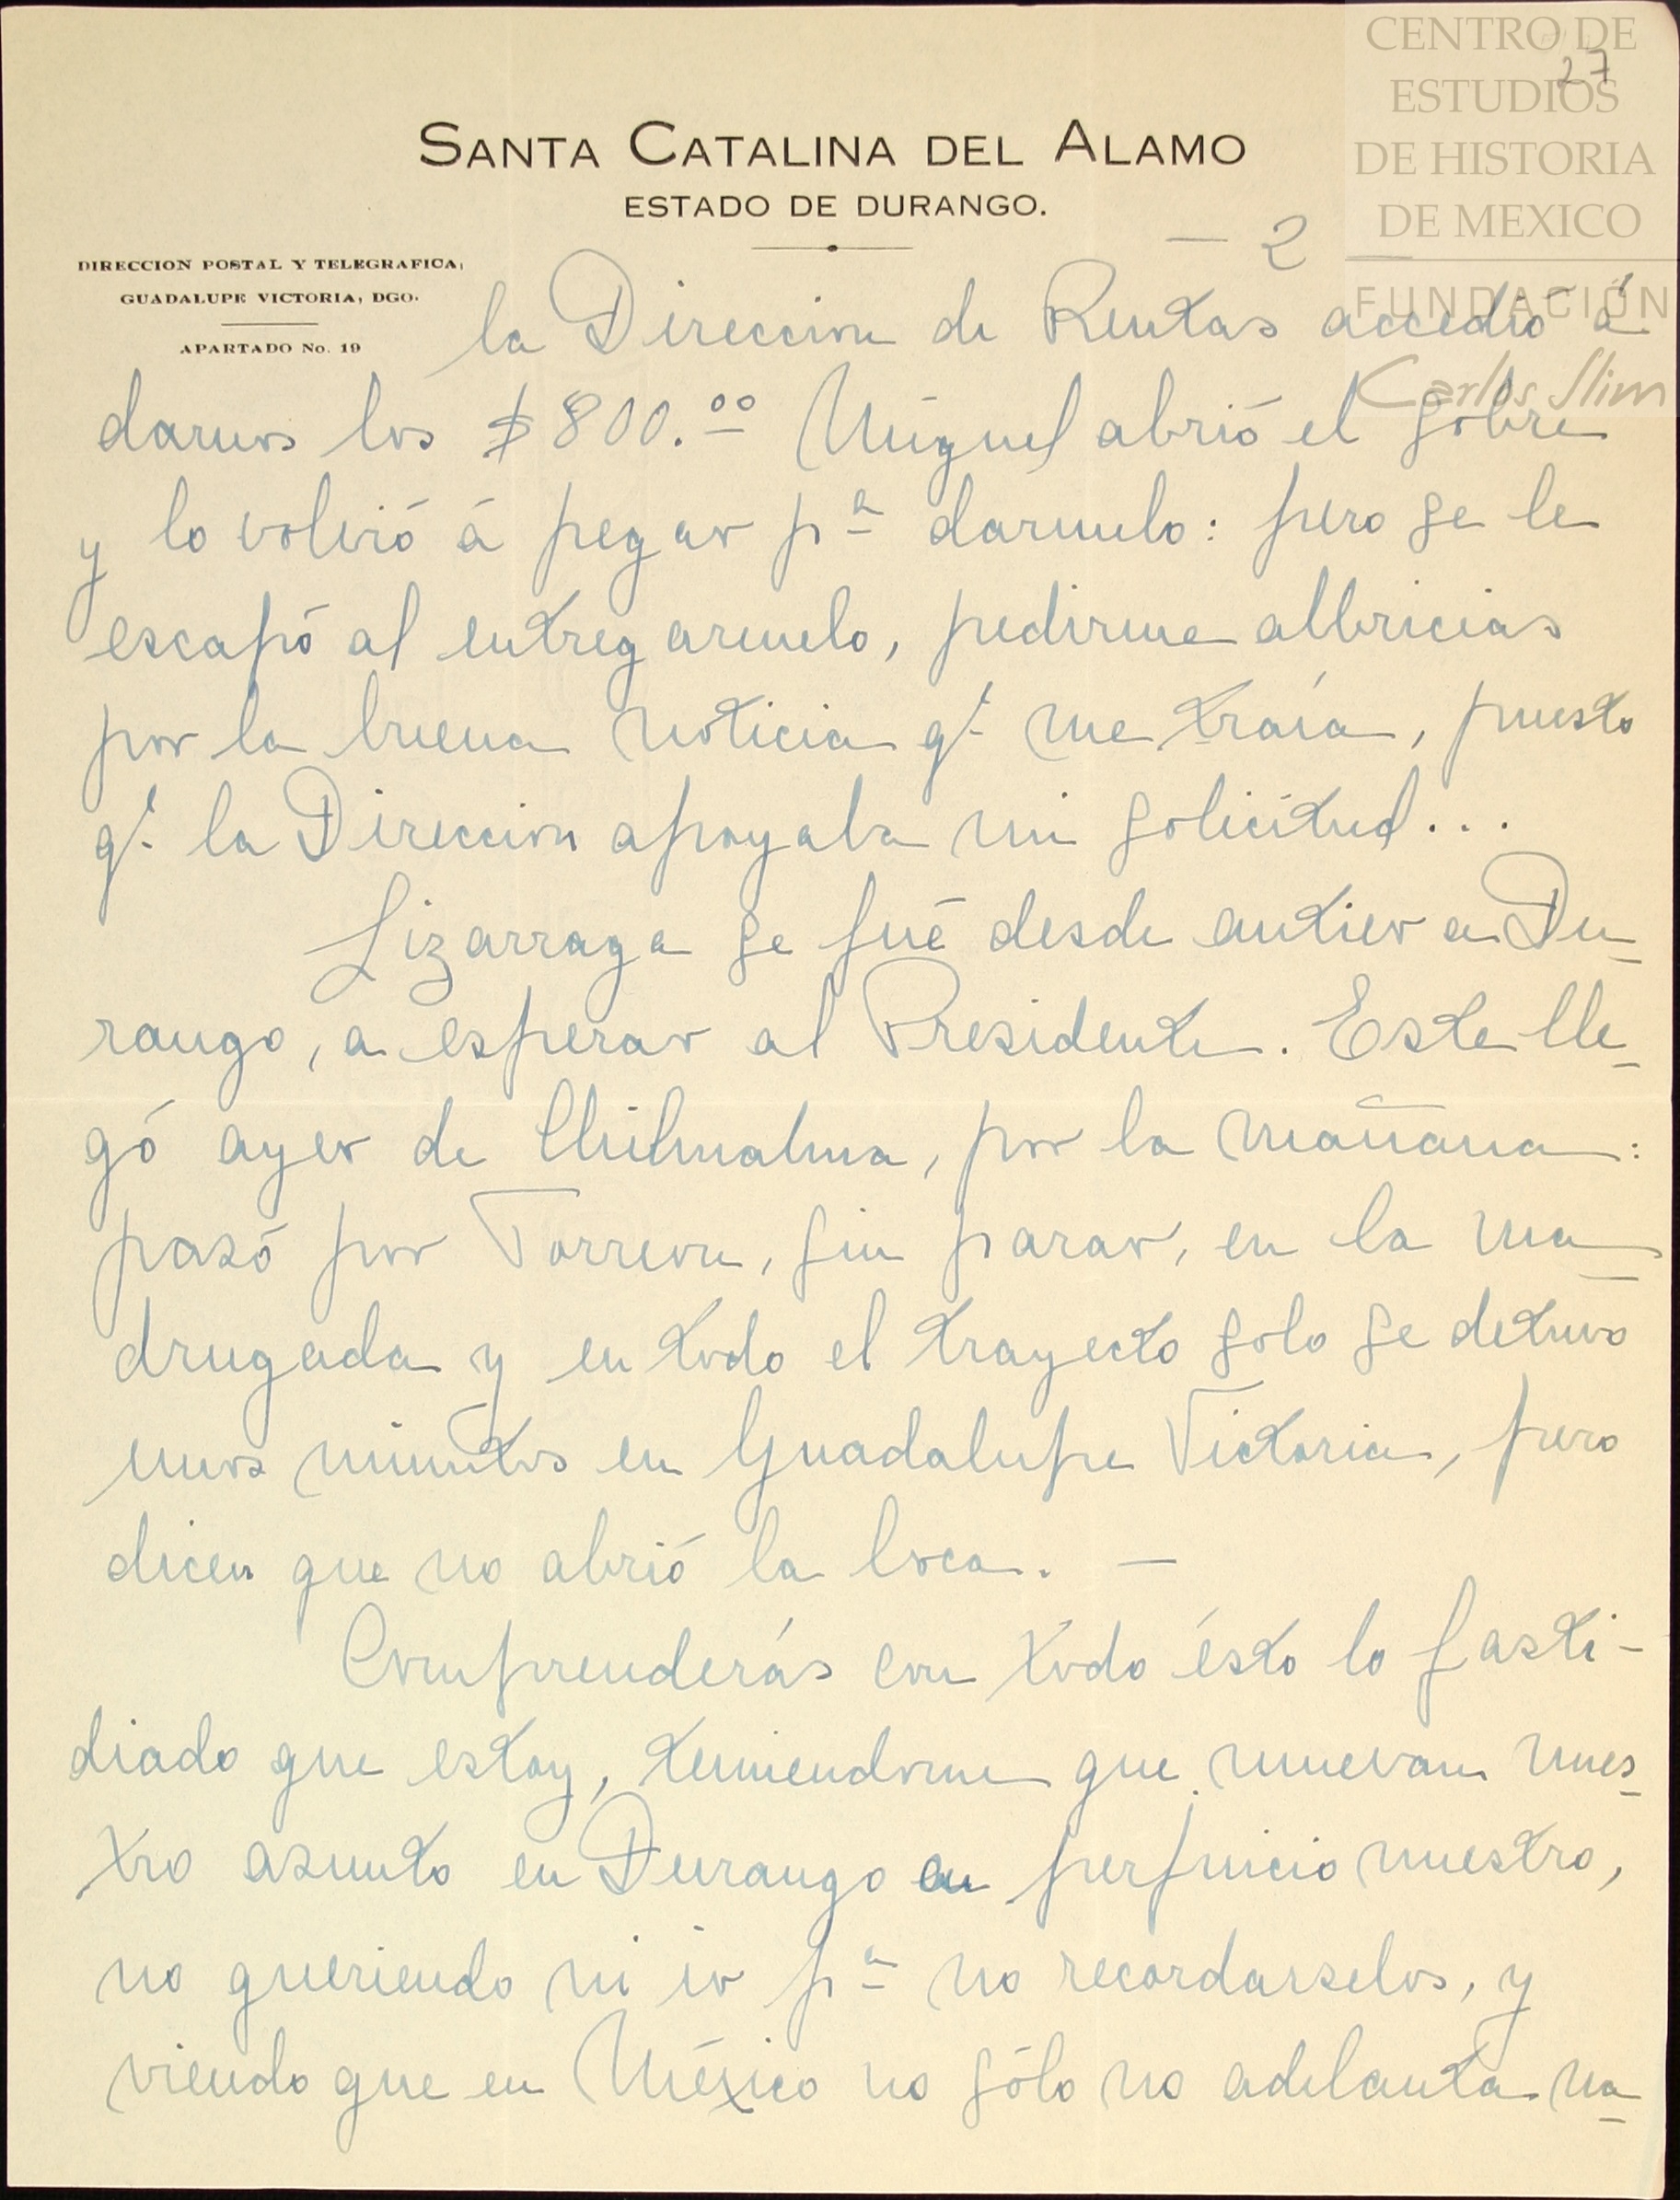 CENTRO DE
ESTUDIOS
DE HISTORIA
DE MEXICO
FUNDACIÓN
Carlos Slim
27
SANTA CATALINA DEL ALAMO
ESTADO DE DURANGO.
— 2 —
DIRECCION POSTAL Y TELEGRAFICA,
GUADALUPE VICTORIA, DGO.
APARTADO No. 19
la Direccion de Rentas accedió á
darnos los $800.00 Miguel abrió el sobre
y lo volvió á pegar pa darmelo: pero se le
escapó al entregarmelo, pedirme albricias
por la buena noticia qe me traía, puesto
qe la Direccion apoyaba mi solicitud...
Lizarraga se fué desde antier a Du-
rango, a esperar al Presidente. Este lle-
gó ayer de Chihuahua, por la mañana:
pasó por Torreon, sin parar, en la ma-
drugada y en todo el trayecto solo se detuvo
unos minutos en Guadalupe Victoria, pero
dicen que no abrió la boca. —
Comprenderás con todo ésto lo fasti-
diado que estoy, temiendome que muevan nues-
tro asunto en Durango en perjuicio nuestro,
no queriendo ni ir pa no recordarselos, y
viendo que en México no sólo no adelanta na-